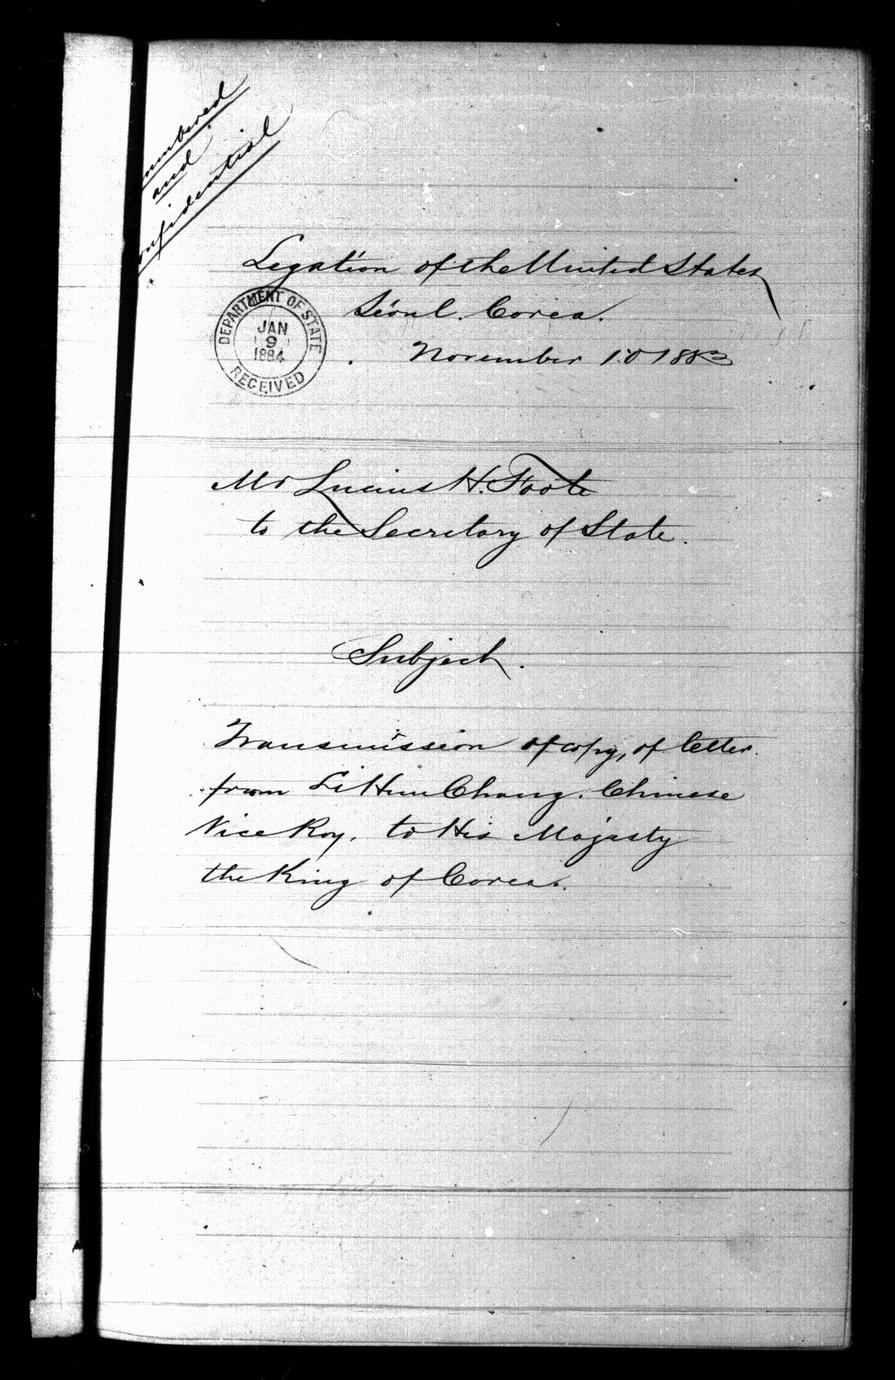 numbered
and
onfidential
Legation of the United States
Séoul. Corea.
DEPARTMENT OF STATE
JAN
9
1884
RECEIVED
November 10 1883
Mr Lucius H. Foote
to the Secretary of State.
Subject.
Transmission of copy, of letter
from Li Hun Chang. Chinese
Vice Roy, to His Majesty
the King of Corea.